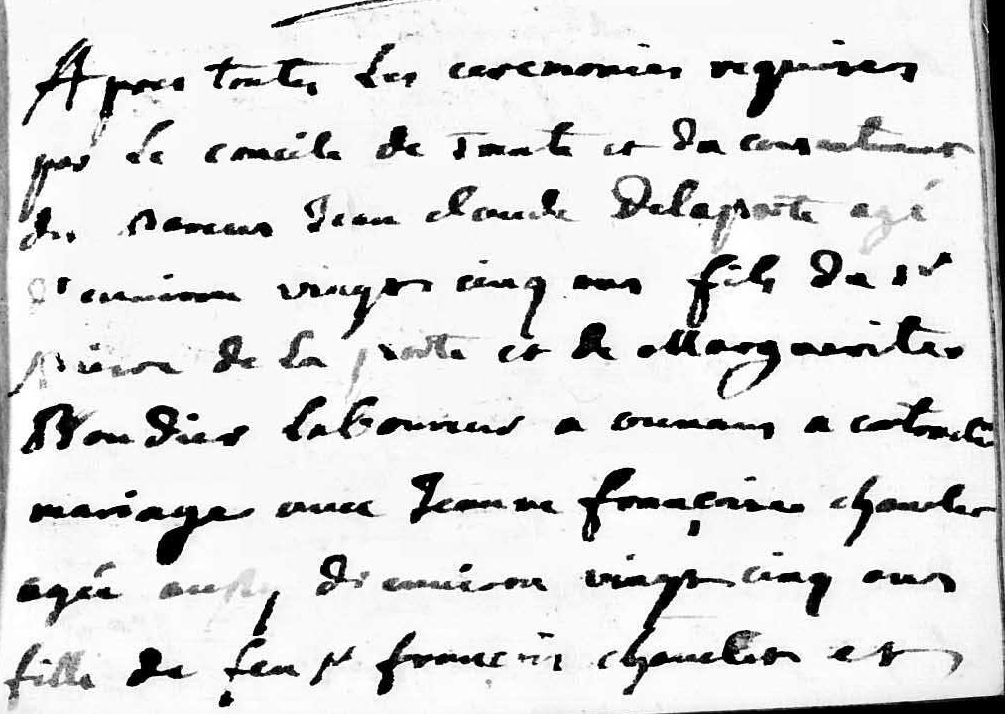 Apres toutes les ceremonies requises
par le concile de Trente et du consentement
des parens Jean claude Delaporte agé
d'environ vingt cinq ans fils du sr
pierre de la porte et de Marguerite
Boudier laboureur a ounans a contracté
mariage avec Jeanne françoise
agée aussy d'environ vingt cinq ans
fille de feu sr françois et